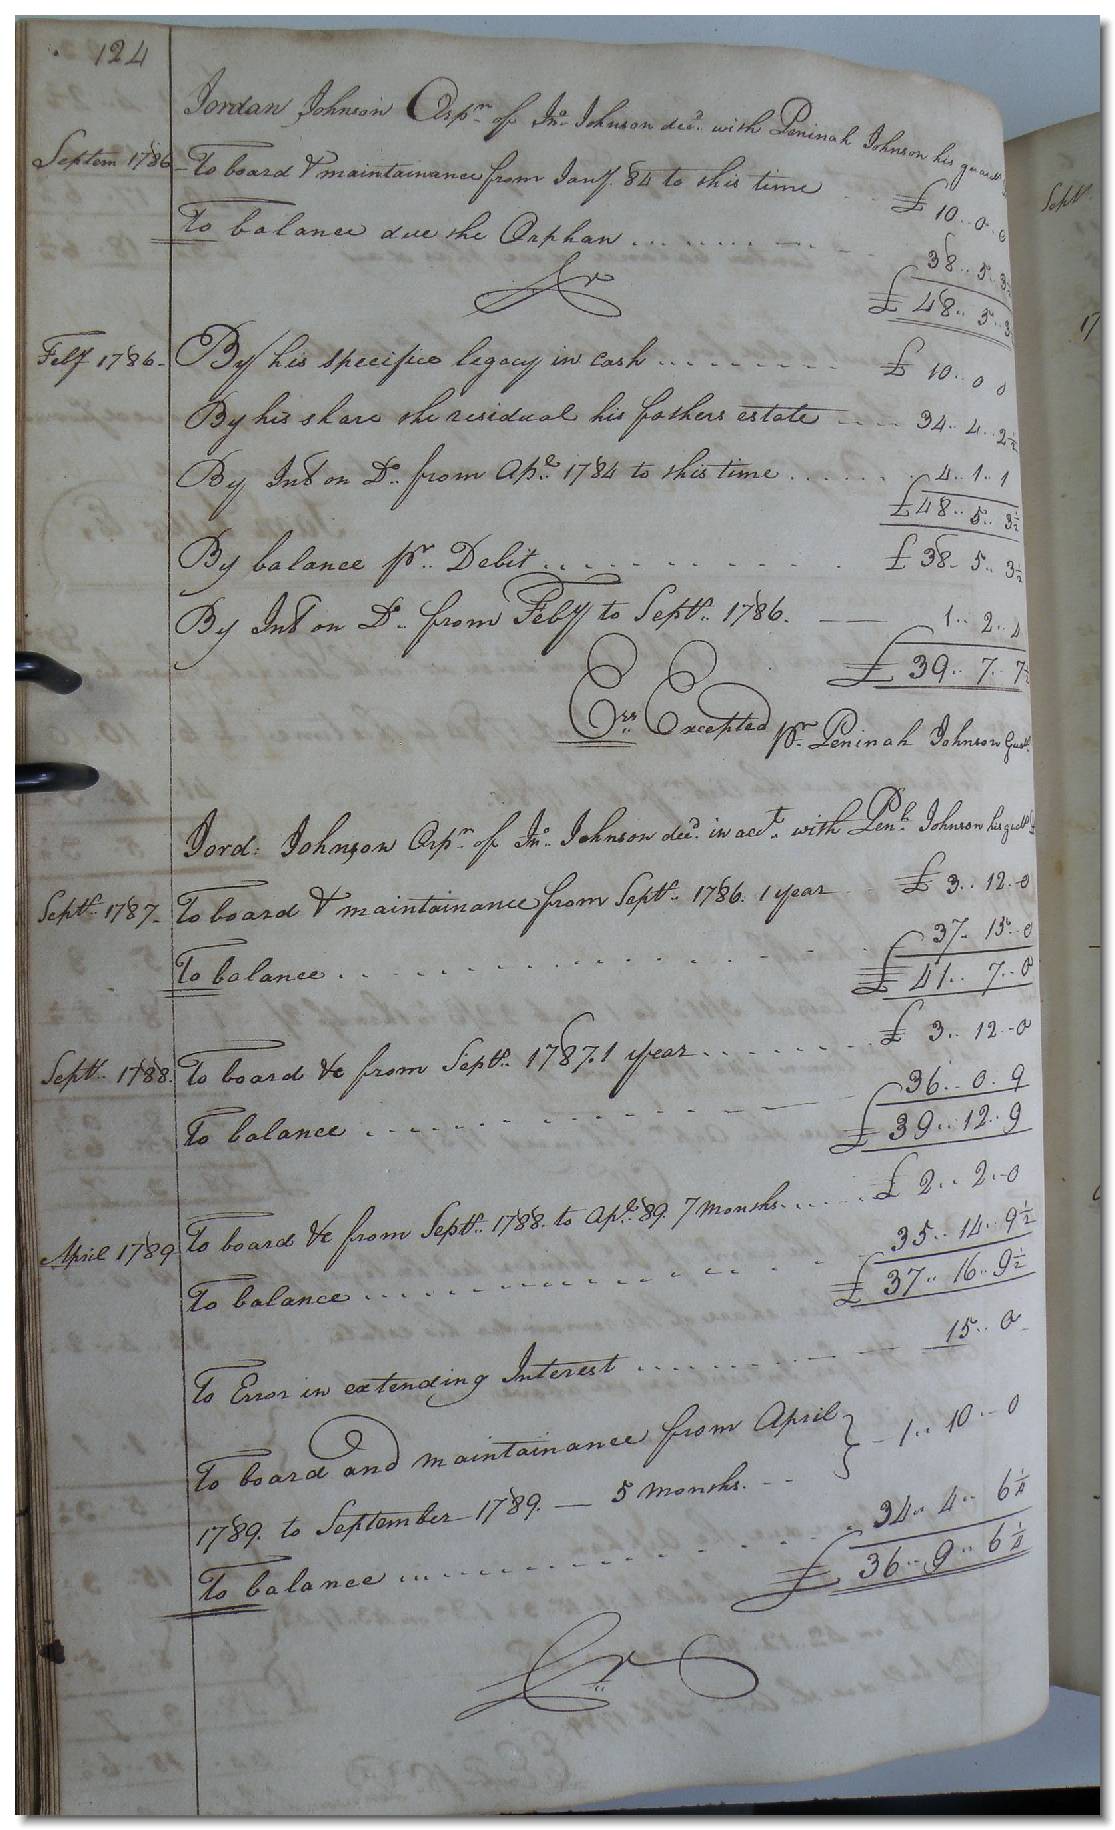 124
Jordan Johnson Orpn. of Jno. Johnson decd. with Peninah Johnson his guardn.
Septem 1786 To board & maintainance from Jany. 84 to this time £ 10..0..0
To balance due the Orphan ........ 38..5..3½
£ 48..5..3
Cr
Feby 1786. By his specific legacy in cash ........ £ 10..0 0
By his share the residual his fathers estate .... 34..4..2½
By Intt on Do. from Apl. 1784 to this time ...... 4..1..1
£48..5..3½
By balance pr. Debit .......... £ 38..5..3½
By Intt on Do. from Feby to Septr. 1786. 1..2..4
£ 39..7..7½
Errs. Excepted pr. Peninah Johnson Guardn.
Jord: Johnson Orpn. of Jno. Johnson decd. in acct. with Penh. Johnson his guardn.
Septr. 1787. To board & maintainance from Septr. 1786. 1 year £ 3..12..0
To balance ........ 37..15..0
£ 41..7..0
Septr. 1788. To board &c from Septr. 1787. 1 year ........ £ 3..12..0
To balance ........ 36..0..9
£ 39..12..9
April 1789 To board &c from Septr. 1788. to Apl. 89. 7 months ..... £ 2..2..0
To balance ........ 35..14..9½
£ 37..16..9½
To Error in extending Interest ........ 15..0
To board and maintainance from April } 1..10..0
1789. to September 1789. — 5 months.
To balance ........ 34..4..6¼
£ 36..9..6¼
Cr
Septr.
17